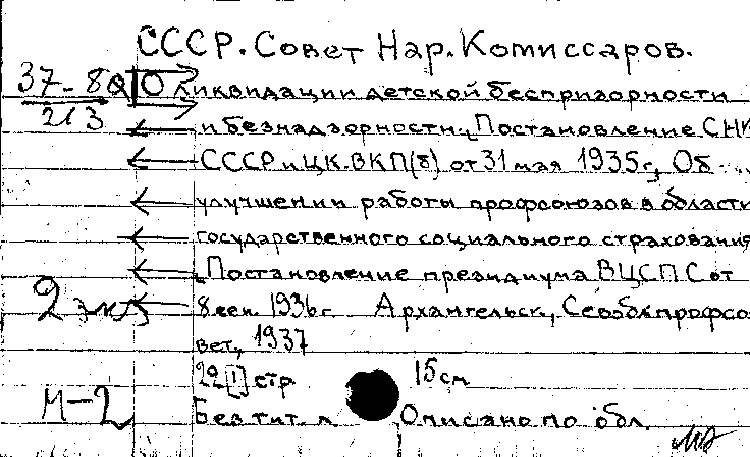 СССР. Совет Нар. Комиссаров.
37-80
213
О ликвидации детской беспризорности
и безнадзорности. Постановление СНК
СССР и ЦК ВКП(б) от 31 мая 1935 г., Об
улучшении работы профсоюзов в области
государственного социального страхования
Постановление президиума ВЦСПС от
2 экз
8 сен. 1936 г. Архангельск, Севоблпрофсо-
вет, 1937
22[1] стр 15 см
М-2
Без тит. л Описано по обл.